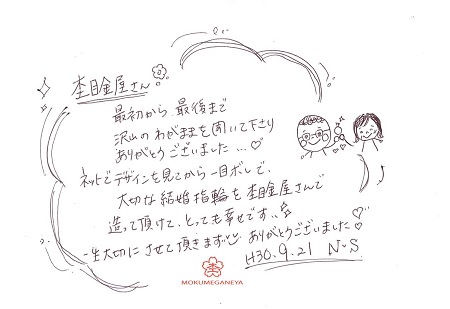 杢目金屋さん
最初から最後まで
沢山のわがままを聞いて下さり
ありがとうございました…♡
ネットでデザインを見てから一目ボレで、
大切な結婚指輪を杢目金屋さんで
造って頂けて、とっても幸せです‥
一生大切にさせて頂きます!! ありがとうございました♡
H30.9.21 N・S
杢
MOKUMEGANEYA